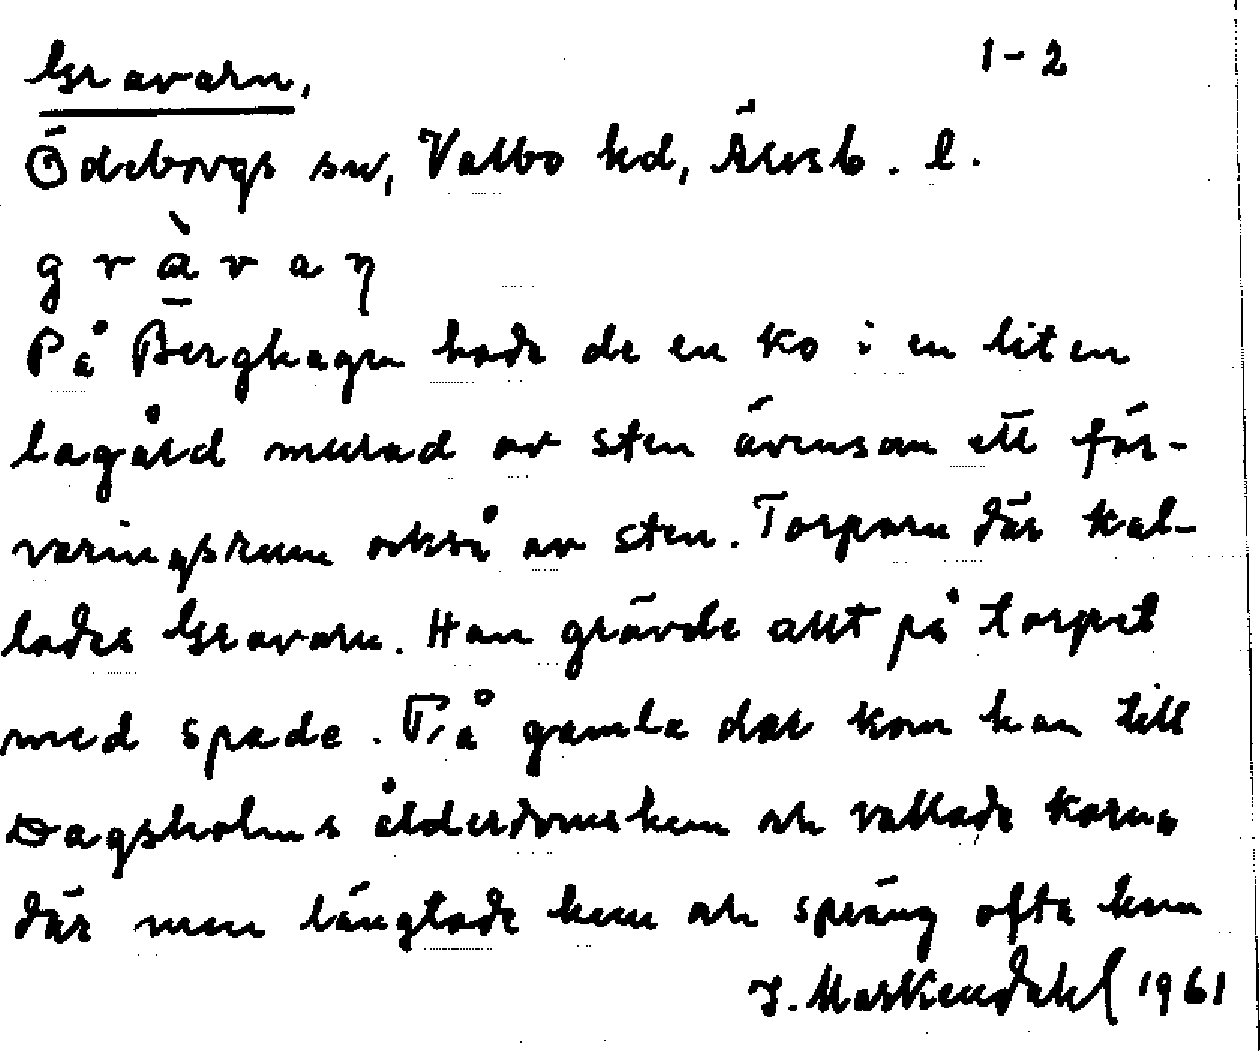 Gravarn, 1-2
Ödeborgs sn, Valbo hd, Älvsb. l.
g r à v a ŋ
På Berghagen hade de en ko i en liten
lagård murad av sten ävensom ett för-
varingsrum också av sten. Torparn där kal-
lades Gravarn. Han grävde allt på torpet
med spade. På gamla dar kom han till
Dagsholms ålderdomshem och vallade korna
där men längtade hem och sprang ofta hem
J. Maskendahl 1961